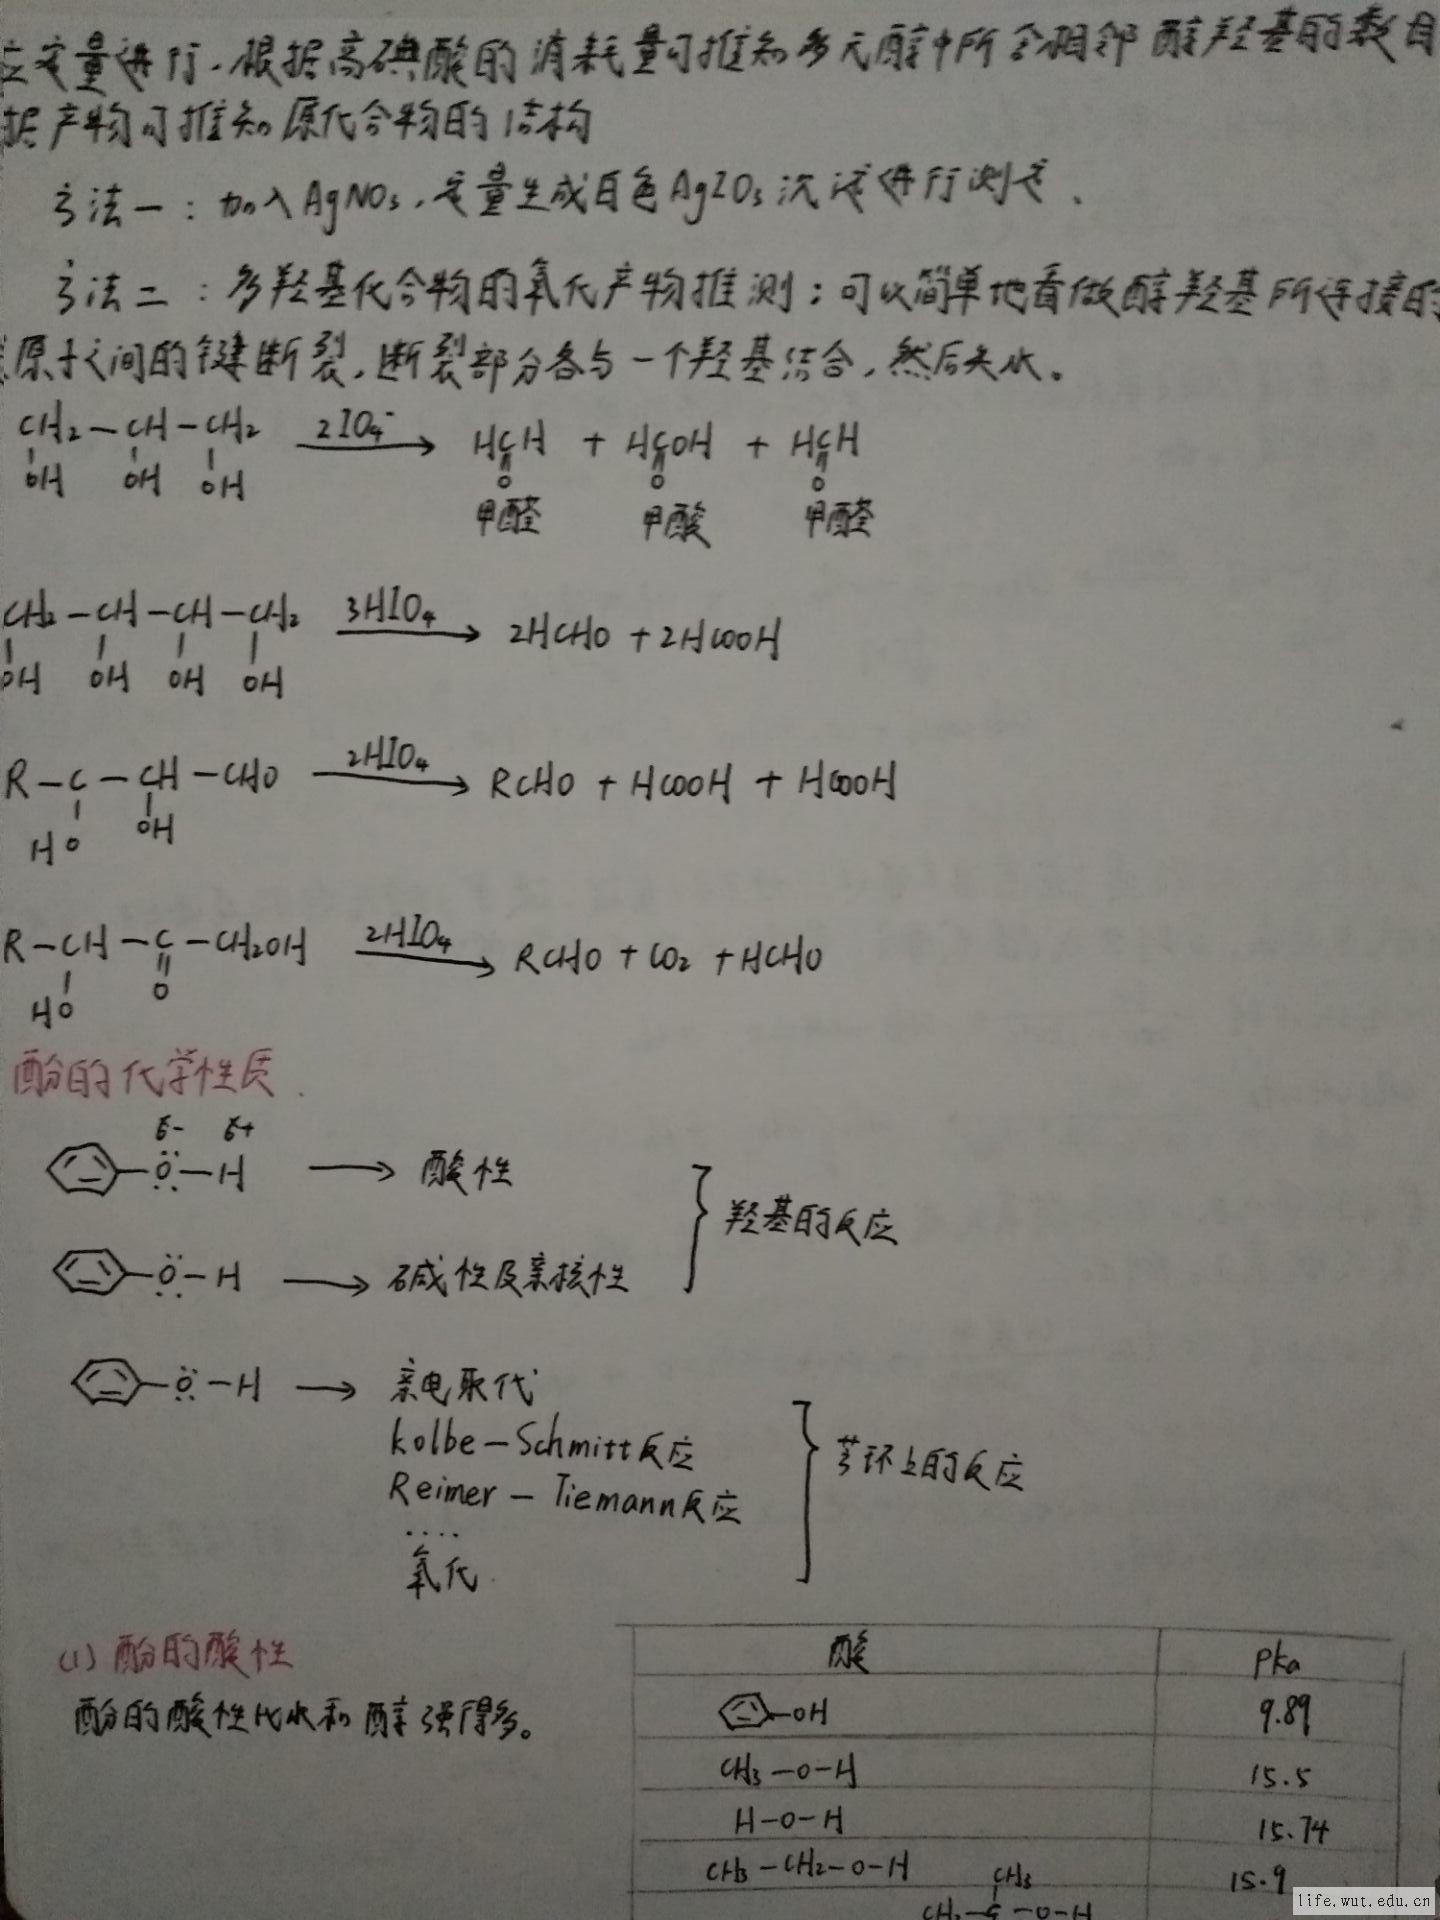 应定量进行.根据高碘酸的消耗量可推知多元醇中所含相邻醇羟基的数目
据产物可推知原化合物的结构
方法一：加入AgNO₃,定量生成白色AgIO₃沉淀进行测定.
方法二：多羟基化合物的氧化产物推测；可以简单地看做醇羟基所连接的
原子之间的键断裂,断裂部分各与一个羟基结合,然后失水。
CH₂—CH—CH₂ 2IO₄⁻ → HCH + HCOH + HCH
OH OH OH O O O
甲醛 甲酸 甲醛
CH₂—CH—CH—CH₂ 3HIO₄ → 2HCHO + 2HCOOH
OH OH OH OH
R—C—CH—CHO 2HIO₄ → RCHO + HCOOH + HCOOH
HO OH
R—CH—C—CH₂OH 2HIO₄ → RCHO + CO₂ + HCHO
HO O
酚的化学性质.
δ- δ+
—O—H → 酸性
羟基的反应
—O—H → 碱性及亲核性
—O—H → 亲电取代
Kolbe—Schmitt反应
芳环上的反应
Reimer—Tiemann反应
....
氧化.
(1) 酚的酸性
酚的酸性比水和醇强得多。
酸 pka
—OH 9.89
CH₃—O—H 15.5
H—O—H 15.74
CH₃—CH₂—O—H 15.9
CH₃
CH₃—C—O—H
life.wut.edu.cn